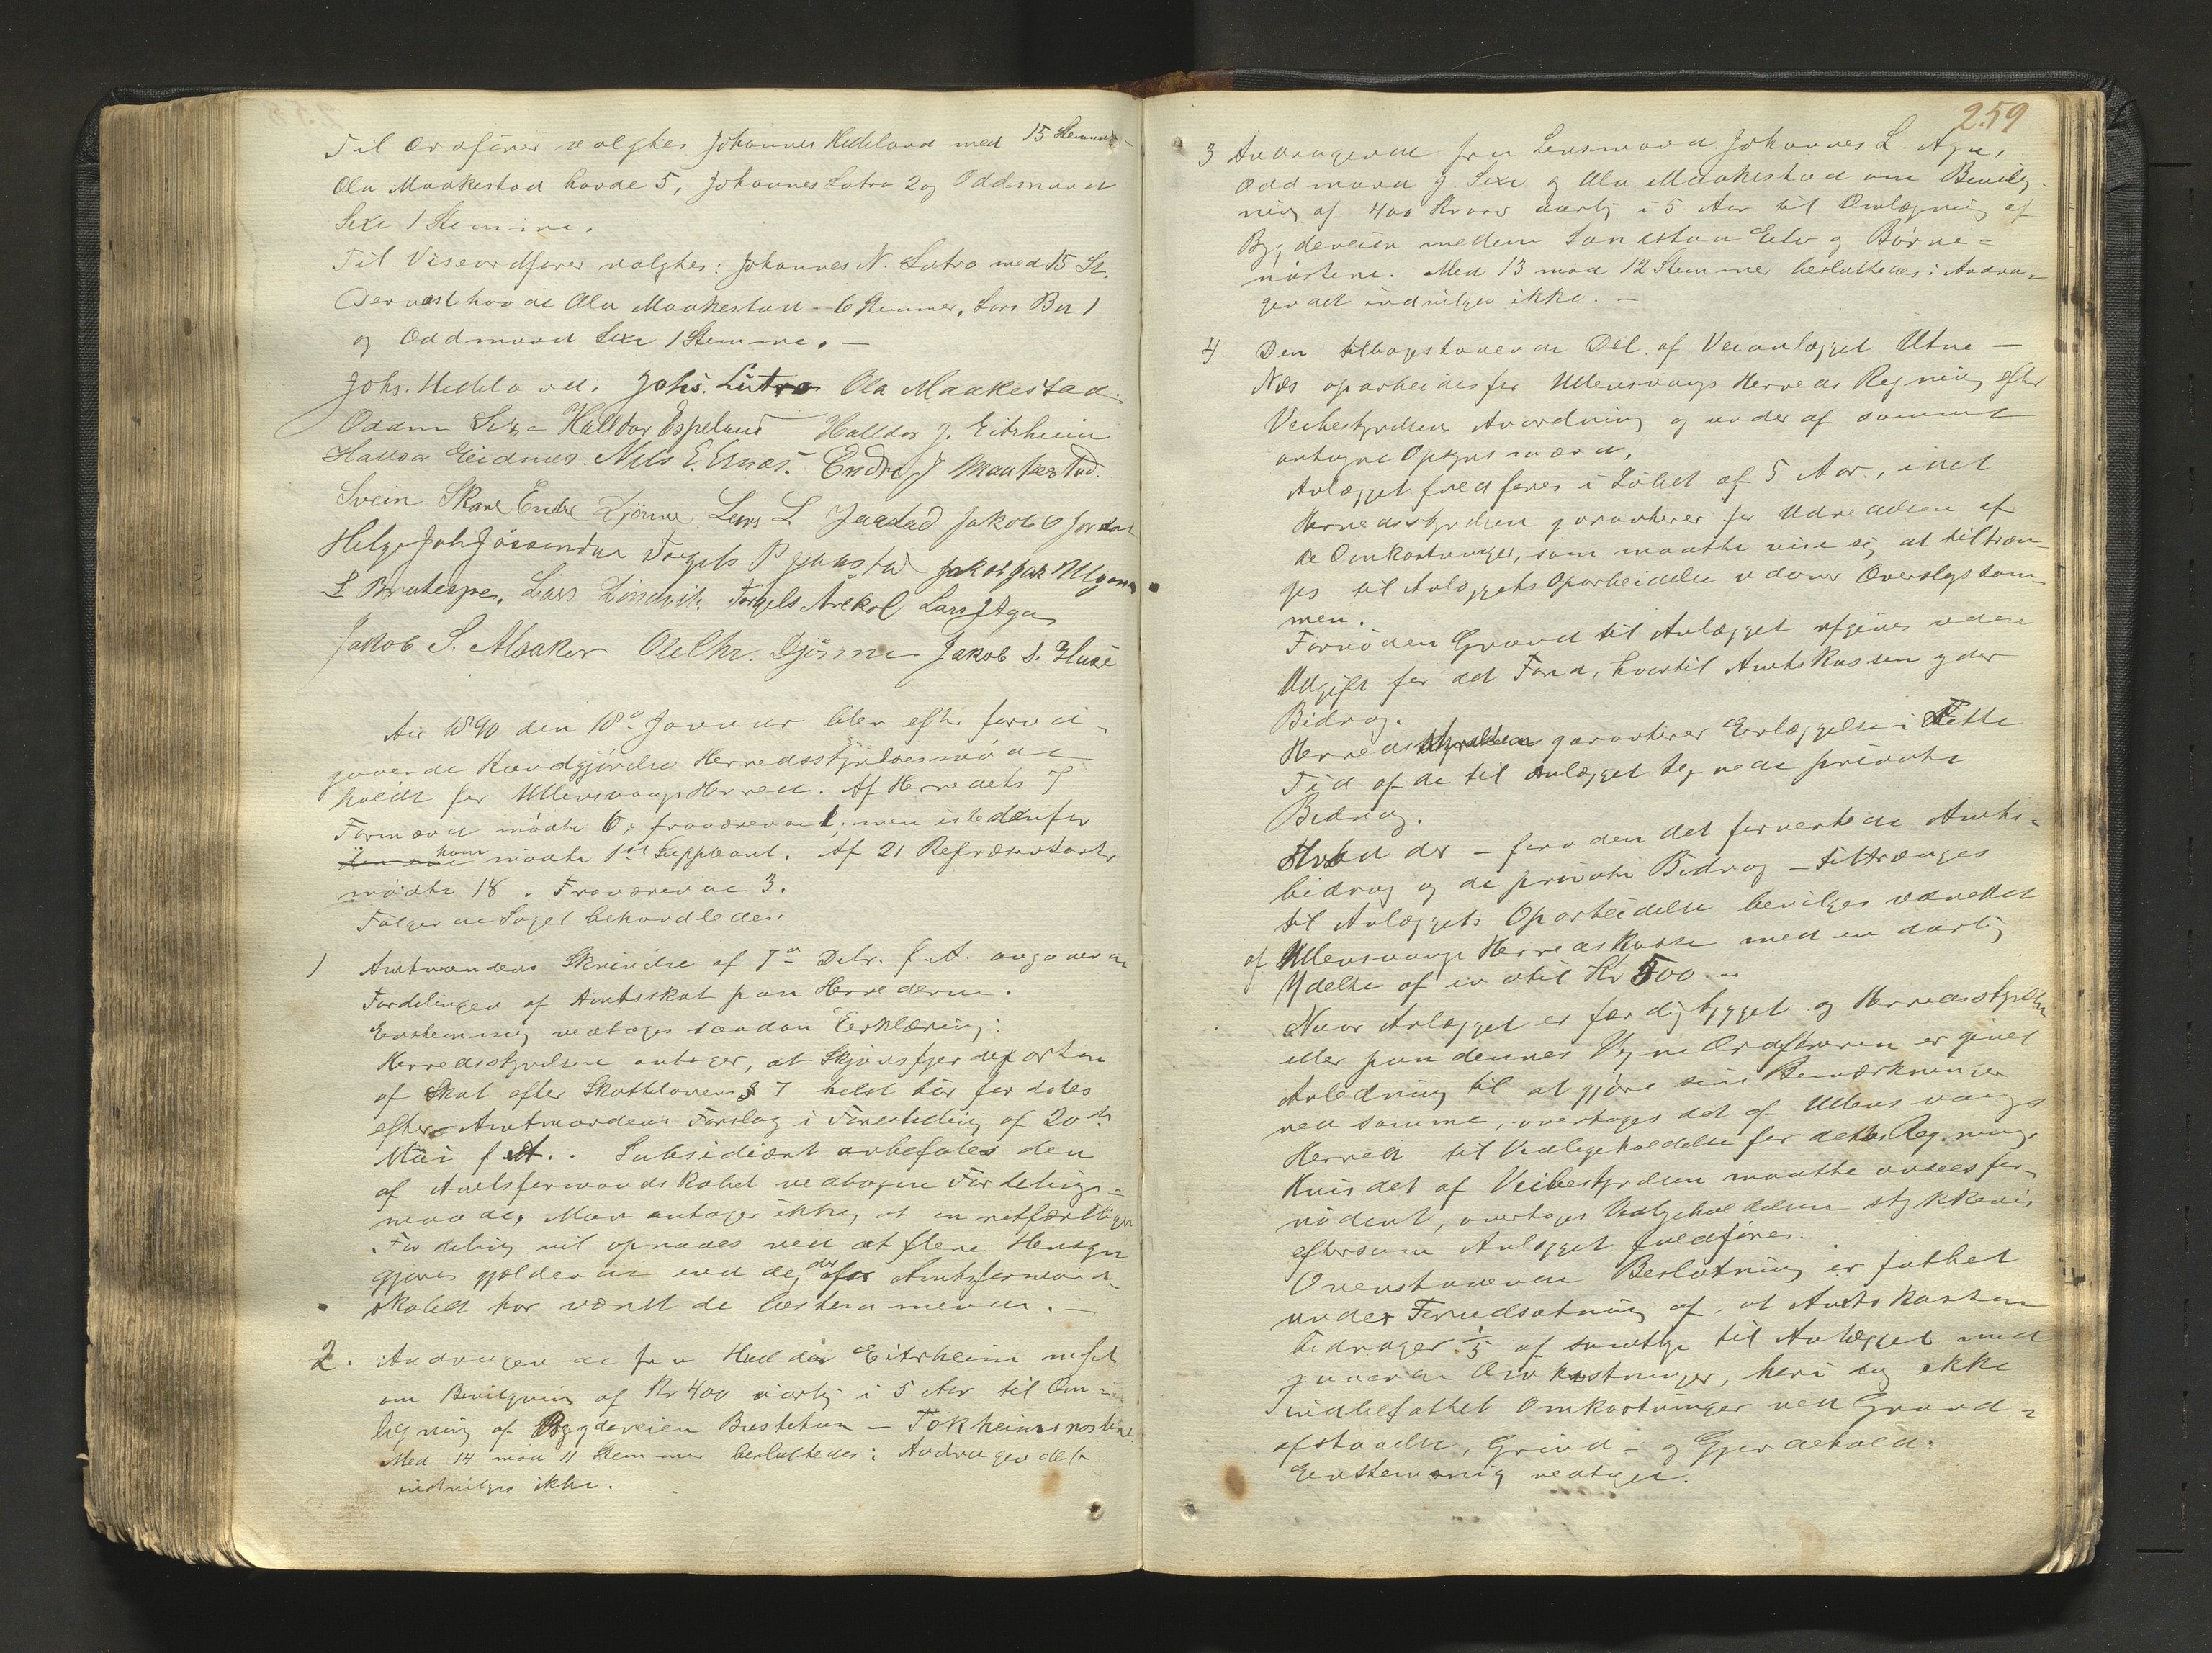 Til Ordfører valgtes Johannes Hildeland med 15 Stemmer
Ola Maakestad havde 5, Johannes Lutro 2 og Oddmund
Sexe 1 Stemme.
Til Viseordfører valgtes: Johannes N. Lutro med 15 St.
Dernæst havde Ola Maakestad 6 Stemmer, Lars Bu 1
og Oddmund Sexe 1 Stemme. –
Johs. Johs. Lutro Ola Maakestad.
Oddm Sexe Halldor Espeland Halldor J. Eitrheim
Halldor Eidnes. Nils E. Ernæs. Endre J Maakestad.
Svein Skare Endre Djönne Lars L Jaastad Jakob O
Helge Joh Jåssendal Torgels P Jaastad Jakob Jak
L Lars Lindvik. Torgels Årekol Lars J Aga
Jakob S. Alsaker Olelhr. Djönne Jakob S. Huse
Aar 1890 den 18de Januar blev efter forud-
gaaende Kundgjørelse Herredsstyrelsesmøde
holdt for Ullensvangs Herred. Af Herredets 7
Formænd mødte 6, fraværende 1, men istedenfor
ham mødte 1ste Suppleant. Af 21 Repræsentanter
mødte 18. Fraværende 3.
Følgende Sager behandledes:
1 Amtmandens Skrivelse af 7de Debr. f. A. angaaende
Fordelingen af Amtsskat paa Herrederne.
Enstemmig vedtoges saadan Erklæring:
Herredsstyrelsen antager, at Skjønsfjerdeparten
af Skat efter Skattelovens § 7 helst bør fordeles
efter Amtmandens Forslag i Forestilling af 20de
Mai f. A. . Subsidiært anbefales den
af Amtsformandskabet vedtagne Fordelings-
maade. Man antager ikke, at en retfærdigere
Fordeling vil opnaaes ved at flere Hensyn
gjøres gjældende end de, der for Amtsformand-
skabet har været de bestemmende. –
2. Andragende fra Halldor Eitrheim
om Bevilgning af Kr 400 aarlig i 5 Aar til Om-
lægning af Bygdeveien Bustetun – Tokheimsnøstene
Med 14 mod 11 Stemmer besluttedes: Andragendet
indvilges ikke.
259
3 Andragende fra Lensmand Johannes L. Aga,
Oddmund J. Sexe og Ola Maakestad om Bevilg-
ning af 400 Kroner aarlig i 5 Aar til Omlægning af
Bygdeveien mellem Elv og Børve-
nøstene. Med 13 mod 12 Stemmer besluttedes: Andra-
gendet indvilges ikke. –
4 Den tilbagestaaende Del af Veianlægget Utne –
Næs oparbeides for Ullensvangs Herreds Regning efter
Veibestyrelsens Anordning og under af samme
antagne Opsynsmænd.
Anlægget fuldføres i Løbet af 5 Aar, idet
Herredsstyrelsen garanterer for Udredelsen af
de Omkostninger, som maatte vise sig at tiltræn-
ges til Anlæggets Oparbeidelse udover Overslagssum-
men.
Fornøden Grund til Anlægget afgives uden
Udgift for det Fond, hvortil Amtskassen yder
Bidrag.
Herredsstyrelsen garanterer Erlæggelse i rette
Tid af de til Anlægget tegnede private
Bidrag.
Hvad der – foruden det forventede Amts-
bidrag og de private Bidrag – tiltrænges
til Anlæggets Oparbeidelse bevilges udredet
af Ullensvangs Herredskasse med en aarlig
Ydelse af indtil Kr 500 –
Naar Anlægget er færdigbygget og Herredsstyrelsen
eller paa dennes Vegne Ordføreren er givet
Anledning til at gjøre sine Bemærkninger
ved samme, overtages det af Ullensvangs
Herred til Vedligeholdelse for dettes Regning.
Hvis det af Veibestyrelsen maatte ansees for-
nødent, overtages Vedligeholdelsen stykkevis
eftersom Anlægget fuldføres.
Ovenstaaende Beslutning er fattet
under Forudsætning af, at Amtskassen
bidrager 1/5 af samtlige til Anlægget med-
gaaende Omkostninger, heri dog ikke
indbefattet Omkostninger ved Grund-
afstaaelse, Grind- og Gjerdehold.
Enstemmig vedtaget.